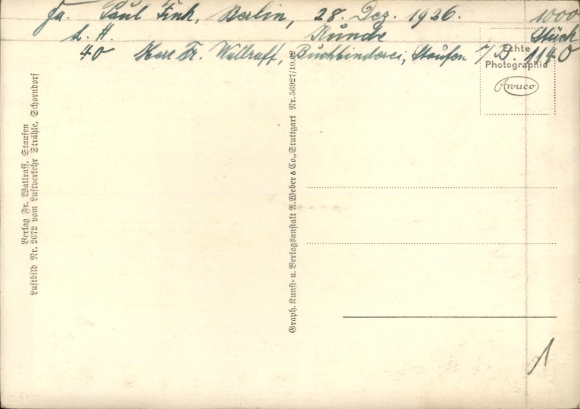 Fa. Paul Fink, Berlin, 28. Dez. 1926. 1000
Kunde Stück
40 Fr. Wallraff, Buchbinderei, Staufen 1140
Echte
Photographie
Awuco
Verlag Fr. Wallraff, Staufen
Luftbild Nr. 2672 vom Luftverkehr Strähle, Schorndorf
Graph. Kunst- u. Verlagsanstalt A. Weber & Co., Stuttgart Nr. 56927/10.
1